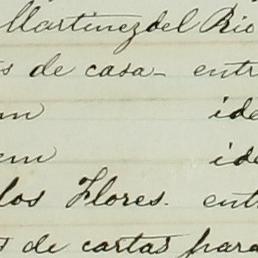 Martinez del Rio
s de casa - entr
m ide
em ide
los Flores. ent
s de cartas para